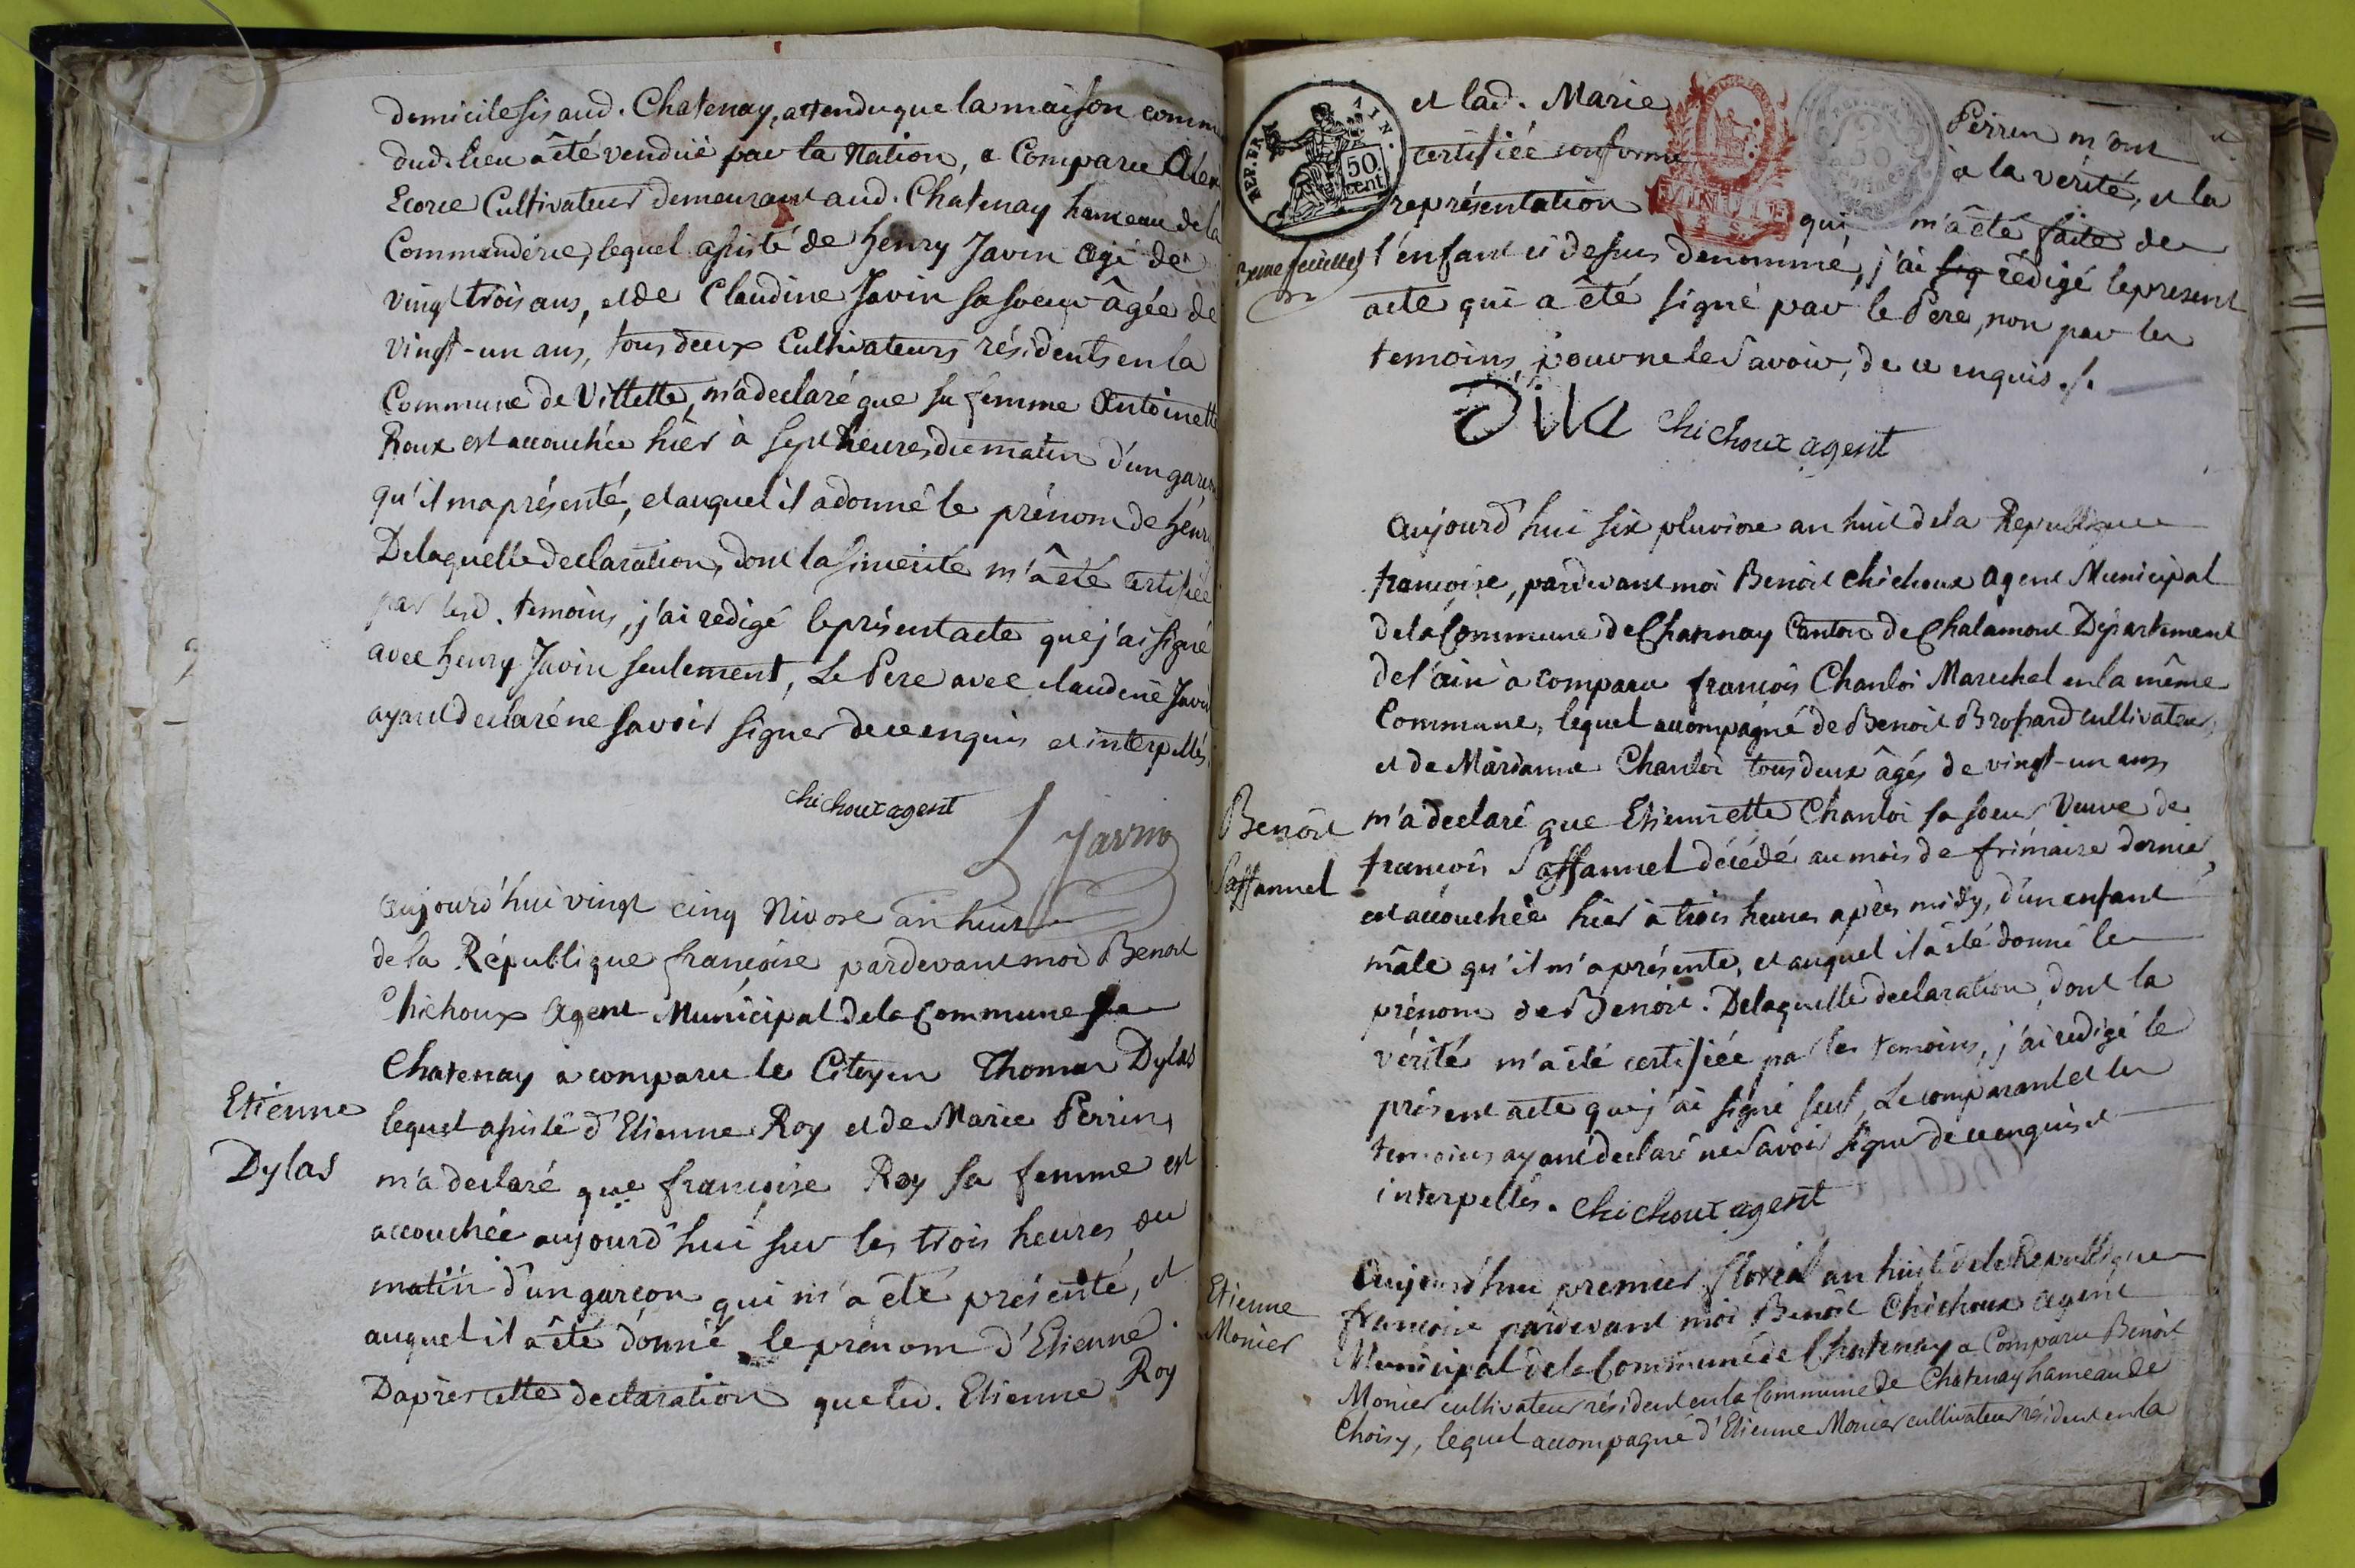 domicile sis aud. Chatenay, attendu que la maison comm
dud. lieu a été venduë par la Nation, a Comparu Alex
Ecorce Cultivateur demeurant aud. Chatenay hameau de la
Commanderie, lequel assisté de henry Javin agé de
vingt trois ans, et de Claudine Javin sa soeur âgée de
vingt-un ans, tous deux Cultivateurs résidents en la
Commune de Villette, m'a declaré que sa femme Antoinette
Roux est accouchée hier à sept heures du matin d'un garçon
qu'il m'a présenté, et auquel il a donné le prénom de henri.
De laquelle declaration, dont la sincérité m'a été certifiée
par lesd. temoins, j'ai redigé le présent acte que j'ai signé
avec henry Javin seulement, Le Pere avec claudine Javin
ayant declaré ne savoir signer de ce enquis et interpellés.
chichoux agent
Javin
Aujourd'hui vingt cinq Nivose an huit
de la République françoise pardevant moi Benoit
Chichoux Agent Municipal de la Commune
Chatenay a comparu le Citoyen Thomas Dylas
Etienne
Dylas
lequel assisté d'Etienne Roy et de Marie Perrin,
m'a declaré que françoise Roy sa femme est
accouchée aujourd'hui sur les trois heures du
matin d'un garçon qui m'a été présenté, et
auquel il a été donné le prenom d'Etienne.
D'après cette declaration que led. Etienne Roy
et lad. Marie Perrin m'ont
certifiée conforme à la vérité, et la
représentation qui m'a été faite de
REP. FRA. AIN.
50
cent
MINUTE
3eme feuillet
l'enfant ci dessus denommé, j'ai sig rédigé le present
acte qui a été signé par le Père, non par les
temoins, pour ne le savoir, de ce enquis ./.
Dila chichoux agent
Aujourd'hui six pluviose an huit de la Republique
françoise, pardevant moi Benoit chichoux agent Municipal
de la Commune de Chatenay Canton de Chalamont Département
de l'ain a comparu françois Chanloi Marechal en la même
Commune, lequel accompagné de Benoit Brossard cultivateur,
et de Marianne Chanloi tous deux âgés de vingt-un ans
Benoit
Saffannel
m'a declaré que Etiennette Chanloi sa soeur Veuve de
françois Saffannel décédé au mois de frimaire dernier,
est accouchée hier à trois heures après midy, d'un enfant
mâle qu'il m'a présenté, et auquel il a été donné le
prénom de Benoit. De laquelle declaration, dont la
vérité m'a été certifiée par les temoins, j'ai redigé le
présent acte que j'ai signé seul, Le comparant et les
temoins ayant declaré ne savoir signer de ce enquis et
interpellés. chichoux agent
Etienne
Monier
Aujourd'hui premier floréal an huit de la Republique
françoise pardevant moi Benoit Chichoux agent
Municipal de la Commune de Chatenay a Comparu Benoit
Monier cultivateur résident en la Commune de Chatenay hameau de
Choisy, lequel accompagné d'Etienne Monier cultivateur résident en la